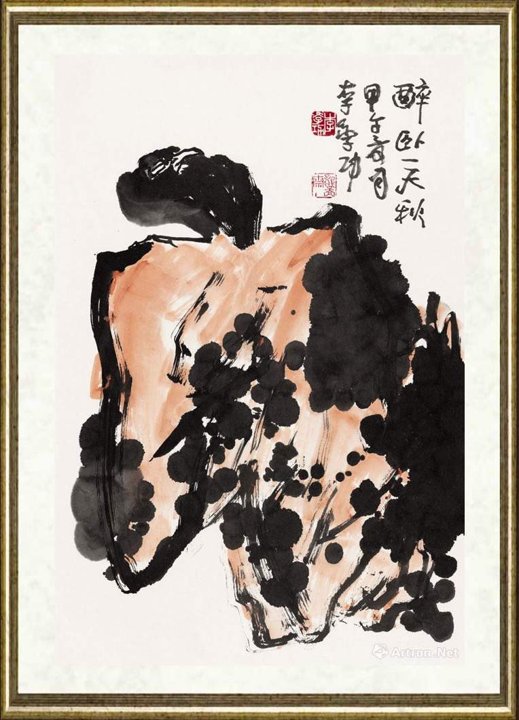 醉卧一天秋
甲午月
李學功
Artron.Net